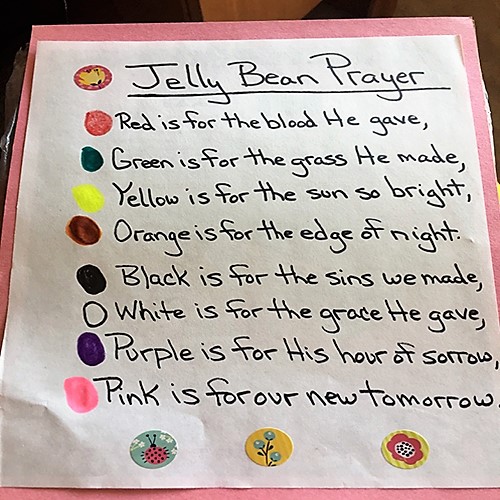 Jelly Bean Prayer
Red is for the blood He gave,
Green is for the grass He made,
Yellow is for the sun so bright,
Orange is for the edge of night.
Black is for the sins we made,
White is for the grace He gave,
Purple is for His hour of sorrow,
Pink is for our new tomorrow.